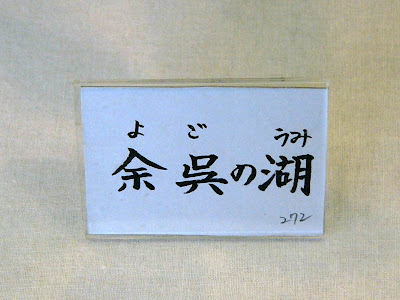 よご うみ
余呉の湖
272